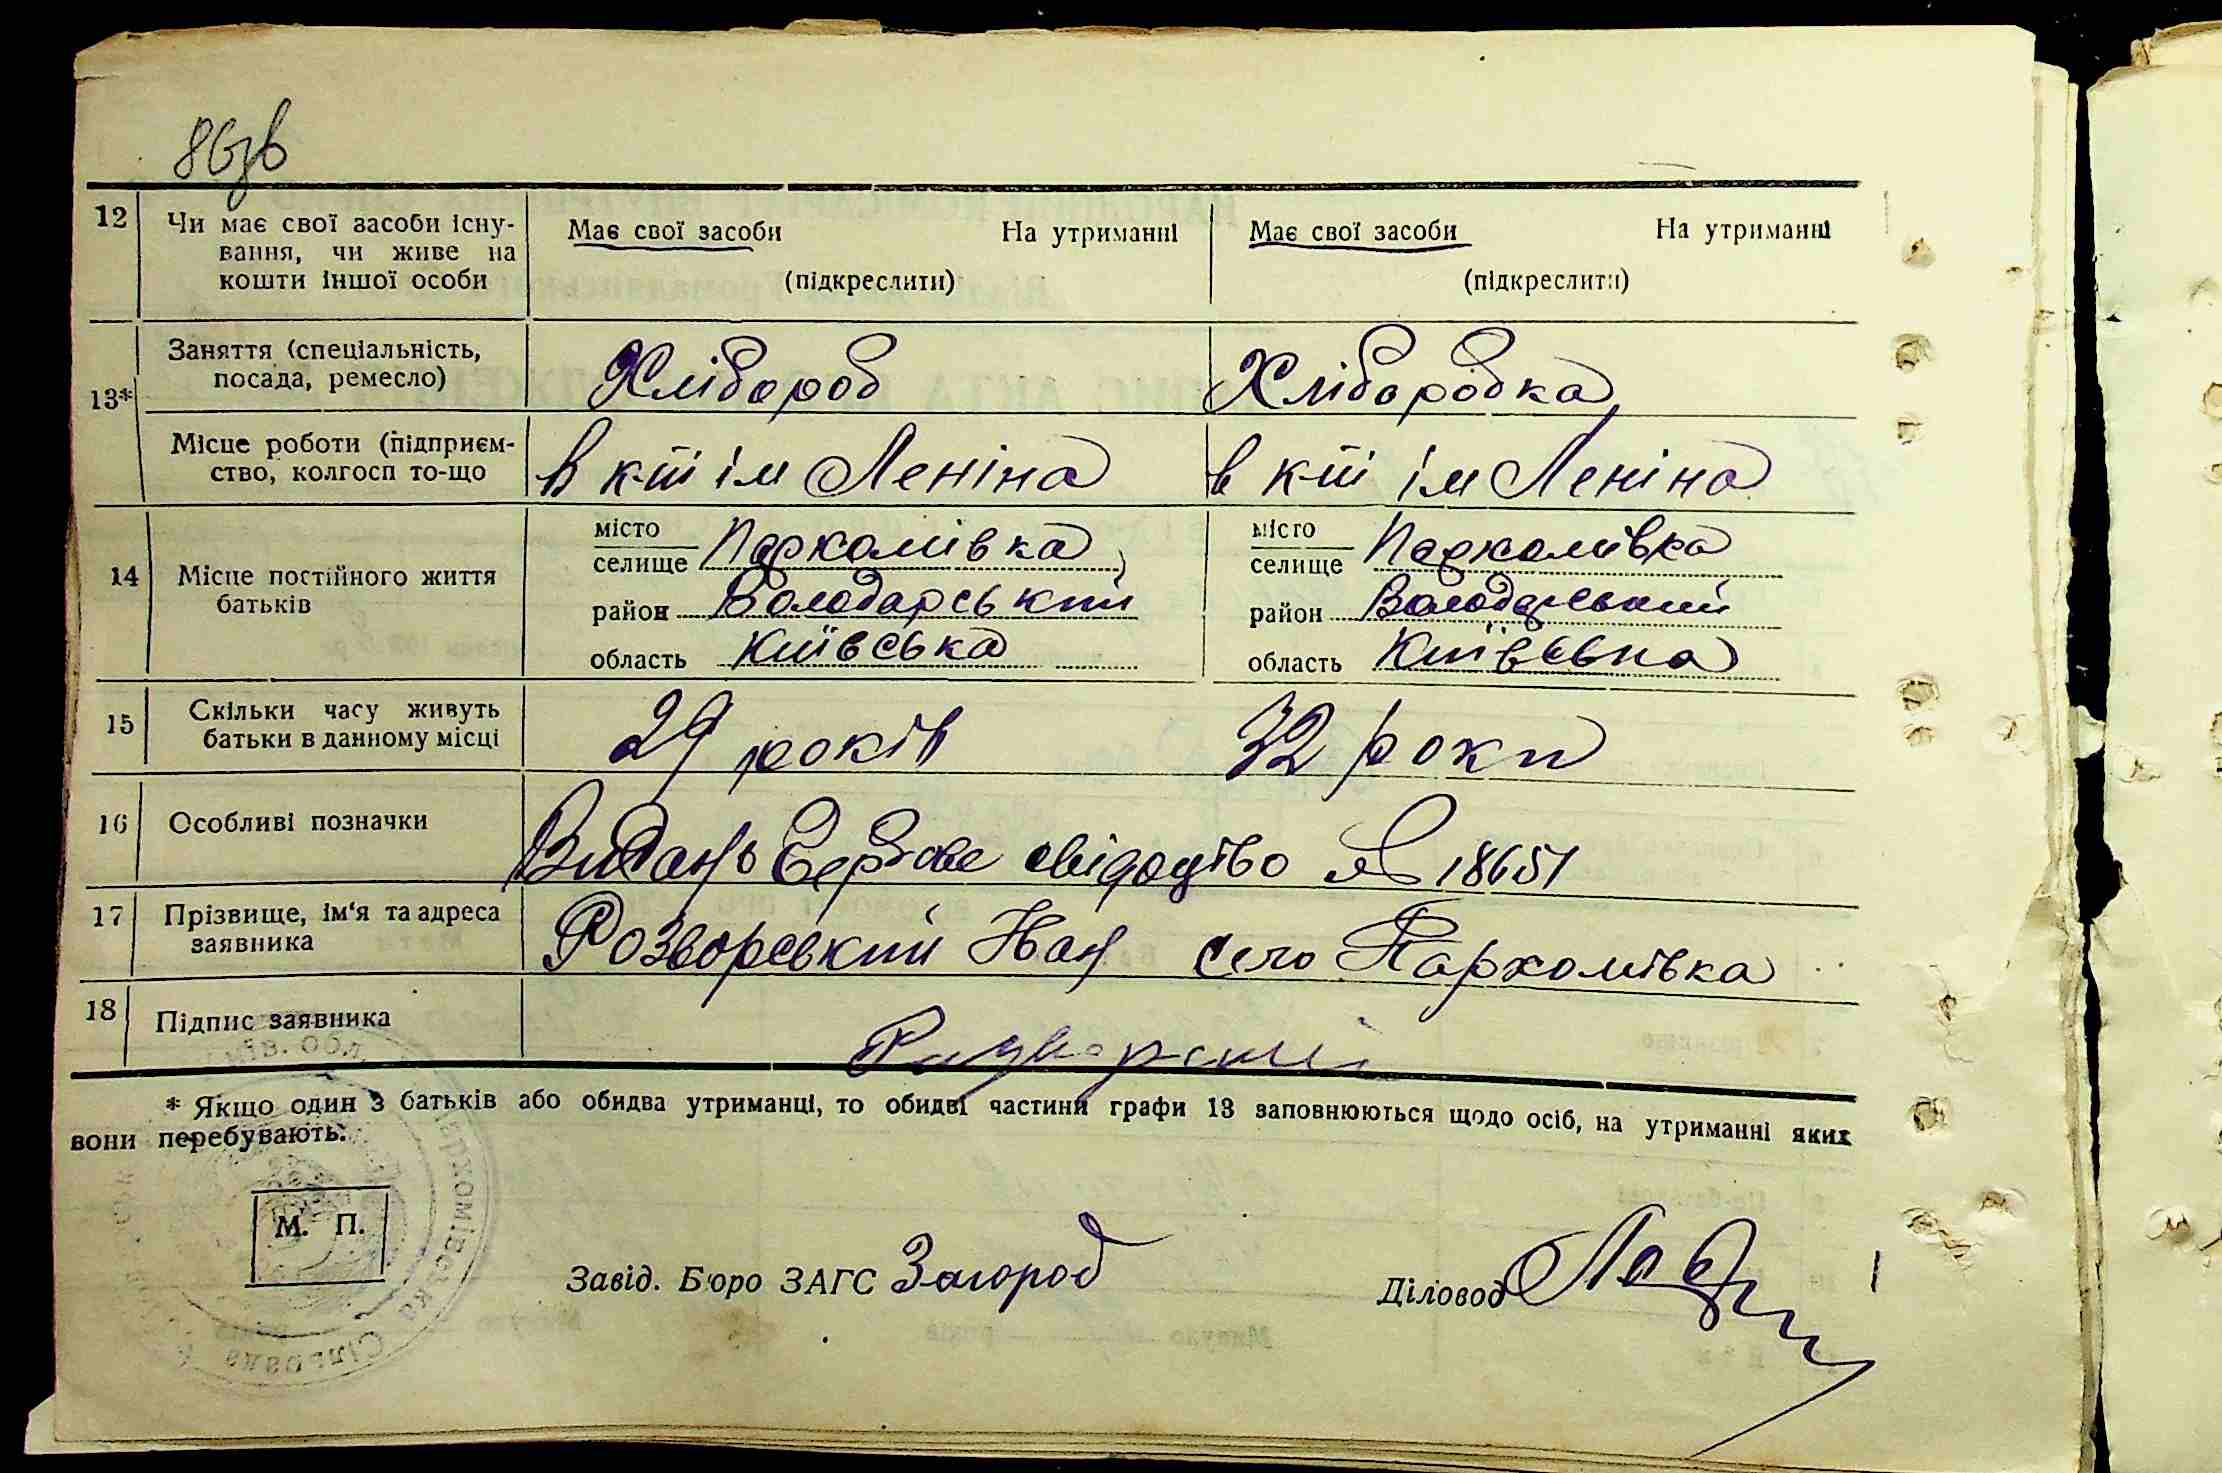 86зв
12 Чи має свої засоби існу- Має свої засоби На утриманні Має свої засоби На утриманні
вання, чи живе на
кошти іншої особи (підкреслити) (підкреслити)
13* Заняття (спеціальність, Хлібороб Хліборобка
посада, ремесло)
Місце роботи (підприєм- в к-ті ім Леніна в к-ті ім Леніна
ство, колгосп то-що
місто місто
селище Пархомівка селище Пархомівка
14 Місце постійного життя
батьків район Володарський район Володарський
область Київська область Київська
15 Скільки часу живуть 29 років 32 роки
батьки в данному місці
16 Особливі позначки свідоцтво 18651
17 Прізвище, ім'я та адреса Розворський Іван село Пархомівка
заявника
18 Підпис заявника
* Якщо один з батьків або обидва утриманці, то обидві частини графи 13 заповнюються щодо осіб, на утриманні яких
вони перебувають.
М. П.
Завід. Бюро ЗАГС Загород Діловод